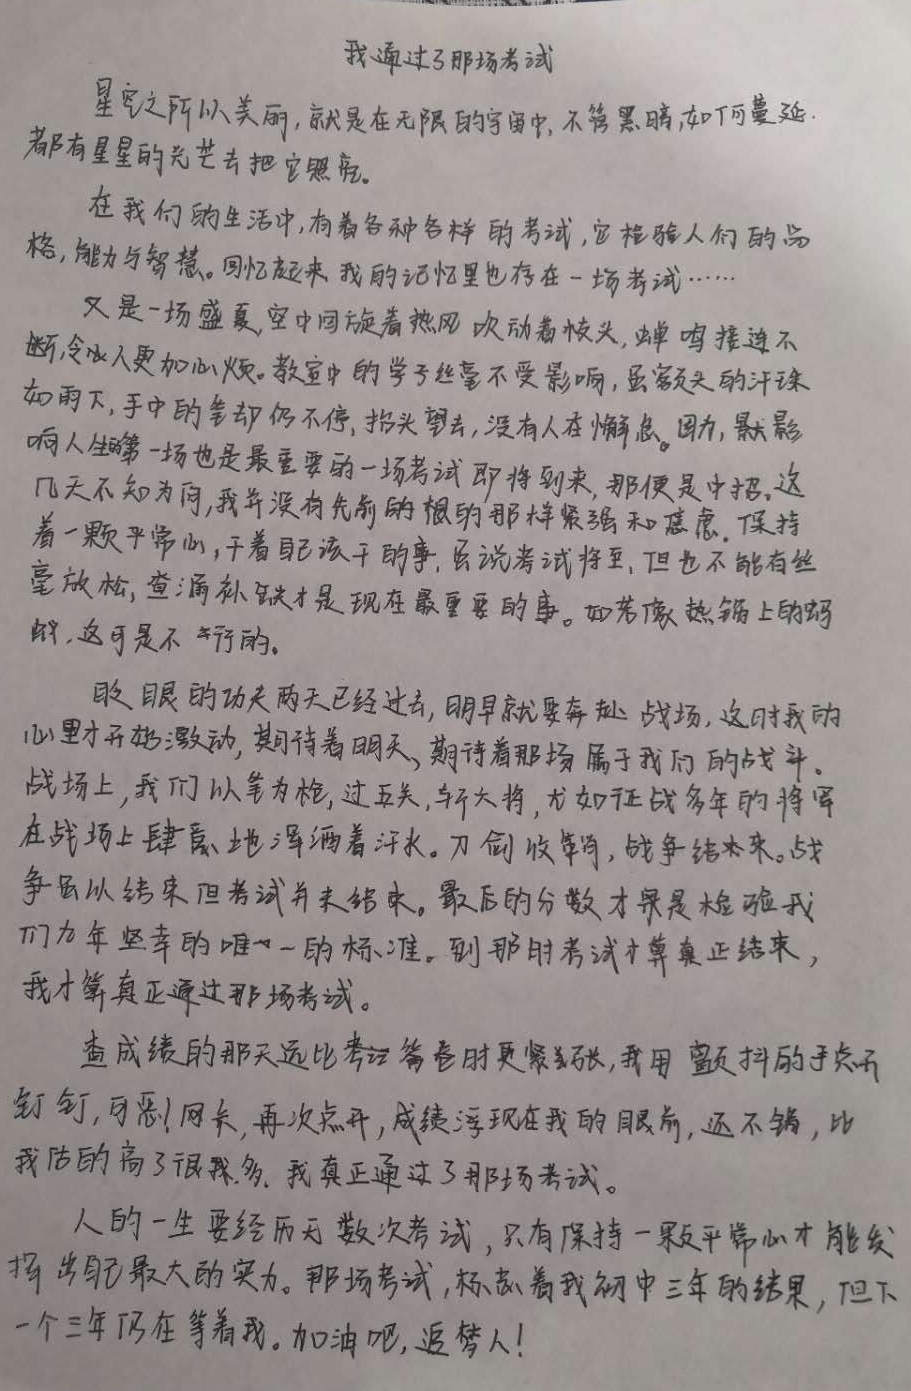 我通过了那场考试
星空之所以美丽,就是在无限的宇宙中,不管黑暗,如何蔓延.
都有星星的光芒去把它照亮。
在我们的生活中,有着各种各样的考试,它检验人们的品
格,能力与智慧。回忆起来我的记忆里也存在一场考试……
又是一场盛夏,空中回旋着热风吹动着枝头,蝉鸣接连不
断,令人更加心烦。教室中的学子丝毫不受影响,虽额头的汗珠
如雨下,手中的笔却仍不停,抬头望去,没有人在懈怠。因为,最影
响人生的第一场也是最重要的一场考试即将到来,那便是中招。这
几天不知为何,我并没有先前的模的那样紧张和焦虑.保持
着一颗平常心,干着自己该干的事,虽说考试将至,但也不能有丝
毫放松,查漏补缺才是现在最重要的事。如若像热锅上的蚂
蚁.这可是不行的。
眨眼的功夫两天已经过去,明早就要奔赴战场.这时我的
心里才开始激动,期待着明天、期待着那场属于我们的战斗。
战场上,我们以笔为枪,过五关,斩大将,尤如征战多年的将军
在战场上肆意地浑洒着汗水。刀剑收鞘,战争结束。战
争虽以结束但考试并未结束。最后的分数才是检验我
们九年坚幸的唯一的标准。到那时考试才算真正结束,
我才算真正通过那场考试。
查成绩的那天远比考答卷时更紧张,我用颤抖的手点开
钉钉,可恶!网卡,再次点开,成绩浮现在我的眼前,还不错,比
我估的高了很多.我真正通过了那场考试。
人的一生要经历无数次考试,只有保持一颗平常心才能发
挥出自己最大的实力。那场考试,标志着我初中三年的结果,但下
一个三年仍在等着我。加油吧,追梦人!